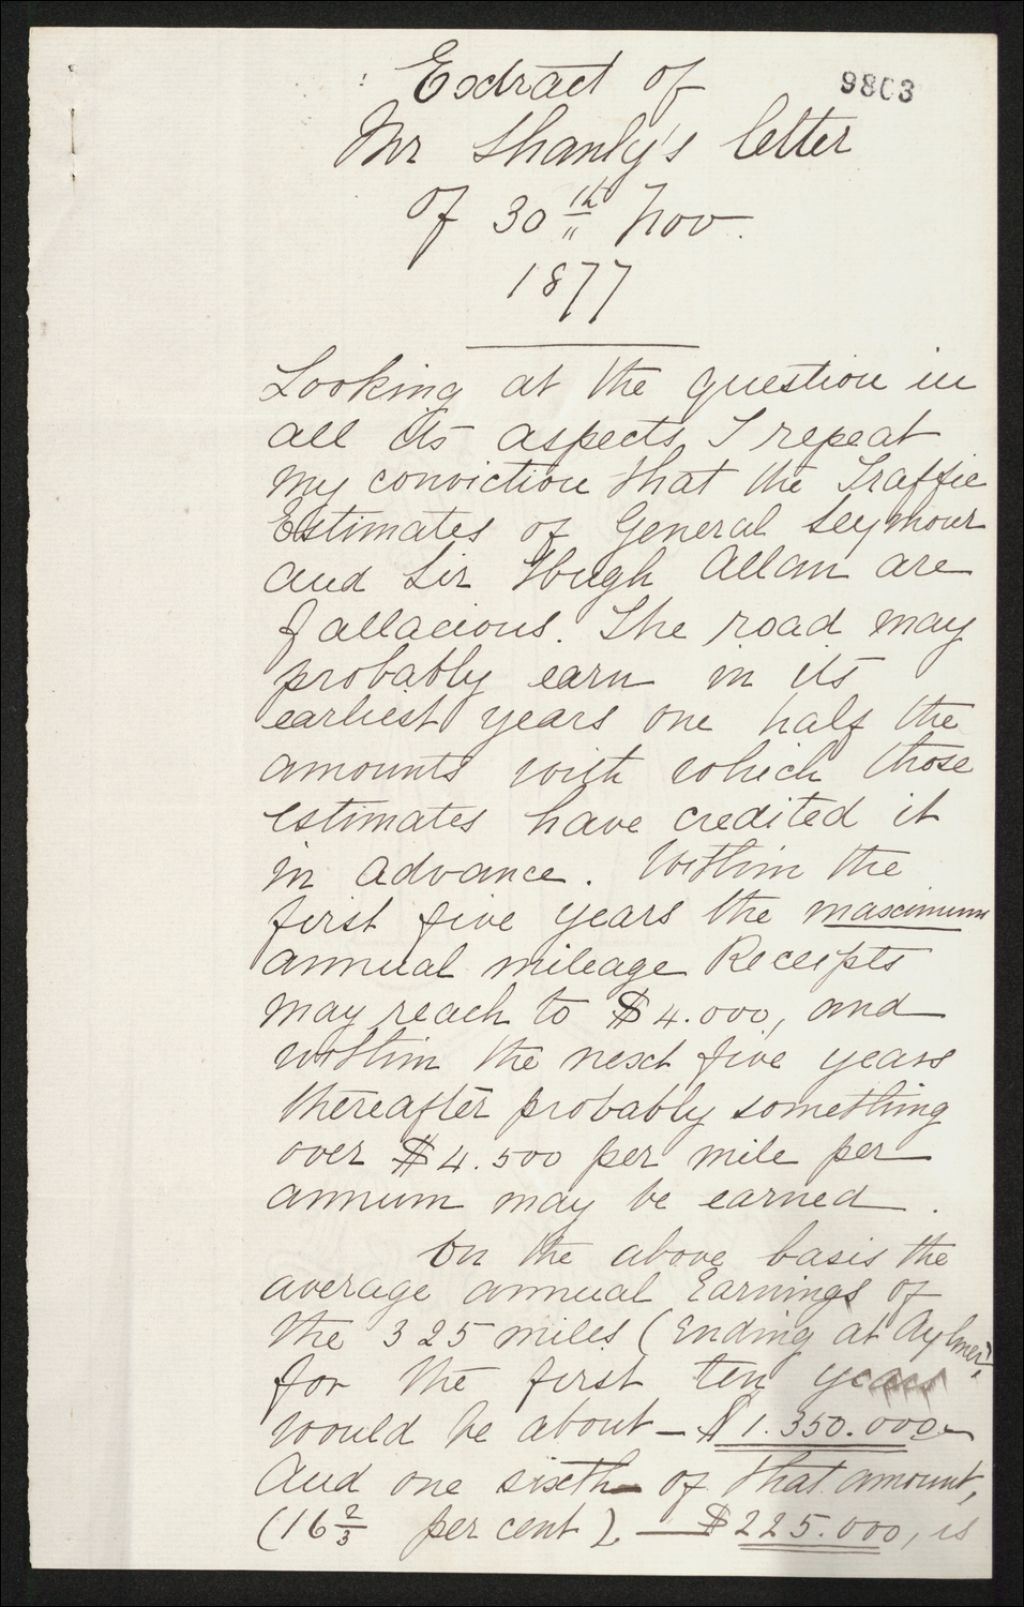 Extract of
9803
Mr Shanly's letter
of 30th Nov.
1877
Looking at the question in
all its aspects, I repeat
my conviction that the Traffic
Estimates of General Seymour
and Sir Hugh Allan are
fallacious. The road may
probably earn in its
earliest years one half the
amounts with which those
estimates have credited it
in advance. Within the
first five years the maximum
annual mileage Receipts
may reach to $4.000, and
within the next five years
thereafter probably something
over $4.500 per mile per
annum may be earned.
On the above basis the
average annual Earnings of
the 325 miles (Ending at Aylmer),
for the first ten years
would be about — $1.350.000 —
And one sixth — of that amount,
(16 2/3 per cent) — $225.000, is